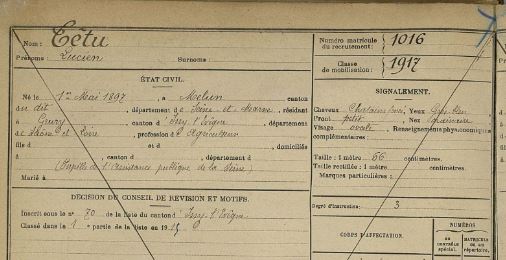 Nom : Tetu
Prénoms : Lucien Surnoms :
Numéro matricule du recrutement : 1016
Classe de mobilisation : 1917
ÉTAT CIVIL.
Né le 1er Mai 1897, à Melun canton
du dit, département de Seine et Marne, résidant
à Cury, canton d' Issy l'Evêque, département
de Saône et Loire, profession d' Agriculteur
fils d et d domiciliés
à , canton d , département d
(Pupille de l'Assistance publique de la Seine)
Marié à
DÉCISION DU CONSEIL DE RÉVISION ET MOTIFS.
Inscrit sous le n° 70 de la liste du canton d Issy l'Evêque
Classé dans la 1 e partie de la liste en 19
SIGNALEMENT.
Cheveux Yeux
Front petit Nez
Visage ovale Renseignements physionomiques
complémentaires :
Taille : 1 mètre 66 centimètres.
Taille rectifiée : 1 mètre centimètres.
Marques particulières :
Degré d'instruction : 3
CORPS D'AFFECTATION.
NUMÉROS
au contrôle spécial.
MATRICULE ou au répertoire.